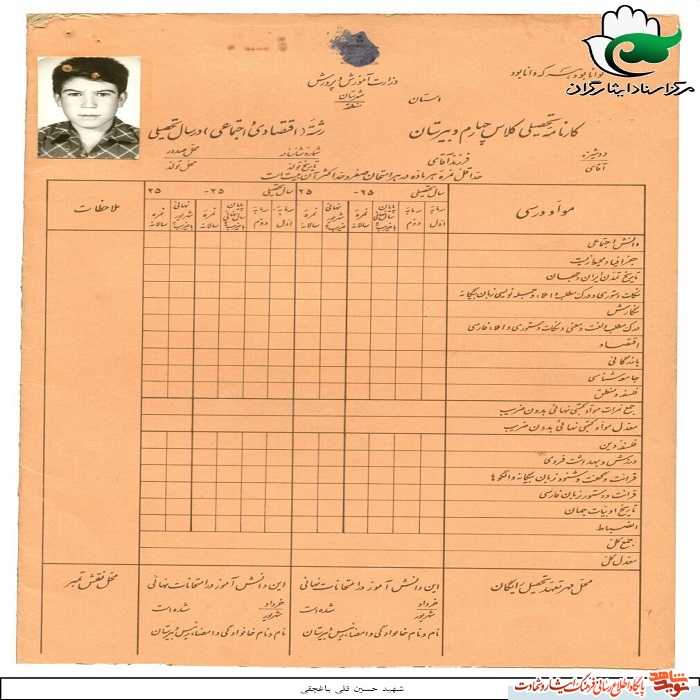 مرکز اسناد ایثارگران
توانا بود هر که دانا بود
وزارت آموزش و پرورش
استان
شهرستان
منطقه
کارنامه تحصیلی کلاس چهارم دبیرستان
رشته (اقتصادی و اجتماعی) در سال تحصیلی
دوشیزه
آقای
فرزند آقای
شماره شناسنامه
تاریخ تولد
محل صدور
محل تولد
حداقل نمره هر ماده در هر امتحان صفر و حداکثر آن بیست است
مواد درسی
سال تحصیلی ۲۵ - ۲۵
سال تحصیلی ۲۵ - ۲۵
ملاحظات
سه ماهه اول
سه ماهه دوم
نمره سالانه
سه ماهه اول
سه ماهه دوم
نمره سالانه
دانش اجتماعی
جغرافیا و محیط زیست
تاریخ تمدن ایران و جهان
نکات دستوری و درک مطلب و املاء و جمله نویسی زبان بیگانه
نگارش
درک مطلب و لغت و معنی و نکات دستوری و املاء فارسی
اقتصاد
بازرگانی
جامعه شناسی
فلسفه و منطق
جمع نمرات مواد کتبی نهائی بدون ضریب
معدل مواد کتبی نهائی بدون ضریب
فلسفه دین
ورزش و بهداشت فردی
قرائت و گفت و شنود زبان بیگانه و الگوها
قرائت و دستور زبان فارسی
تاریخ ادبیات جهان
انضباط
جمع کل
معدل کل
محل مهر تعهد تحصیل رایگان
این دانش آموز در امتحانات نهائی
خرداد
شهریور
شده است
نام و نام خانوادگی و امضاء رئیس دبیرستان
این دانش آموز در امتحانات نهائی
خرداد
شهریور
شده است
نام و نام خانوادگی و امضاء رئیس دبیرستان
محل نقش تمبر
شهید حسین قلی باغچقی
نوید شاهد
پایگاه اطلاع رسانی فرهنگ ایثار و شهادت